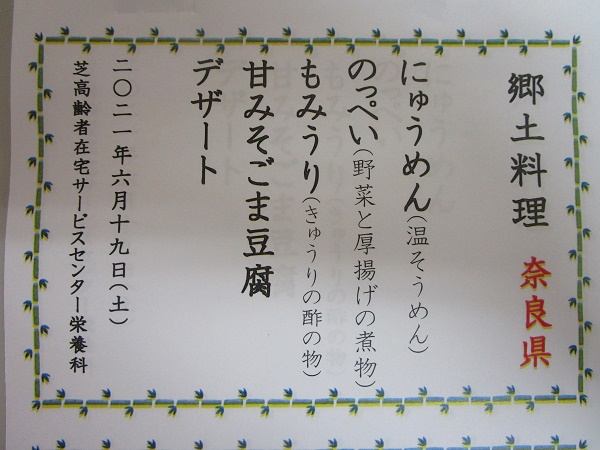 郷土料理 奈良県
にゅうめん(温そうめん)
のっぺい(野菜と厚揚げの煮物)
もみうり(きゅうりの酢の物)
甘みそごま豆腐
デザート
二〇二一年六月十九日(土)
芝高齢者在宅サービスセンター栄養科